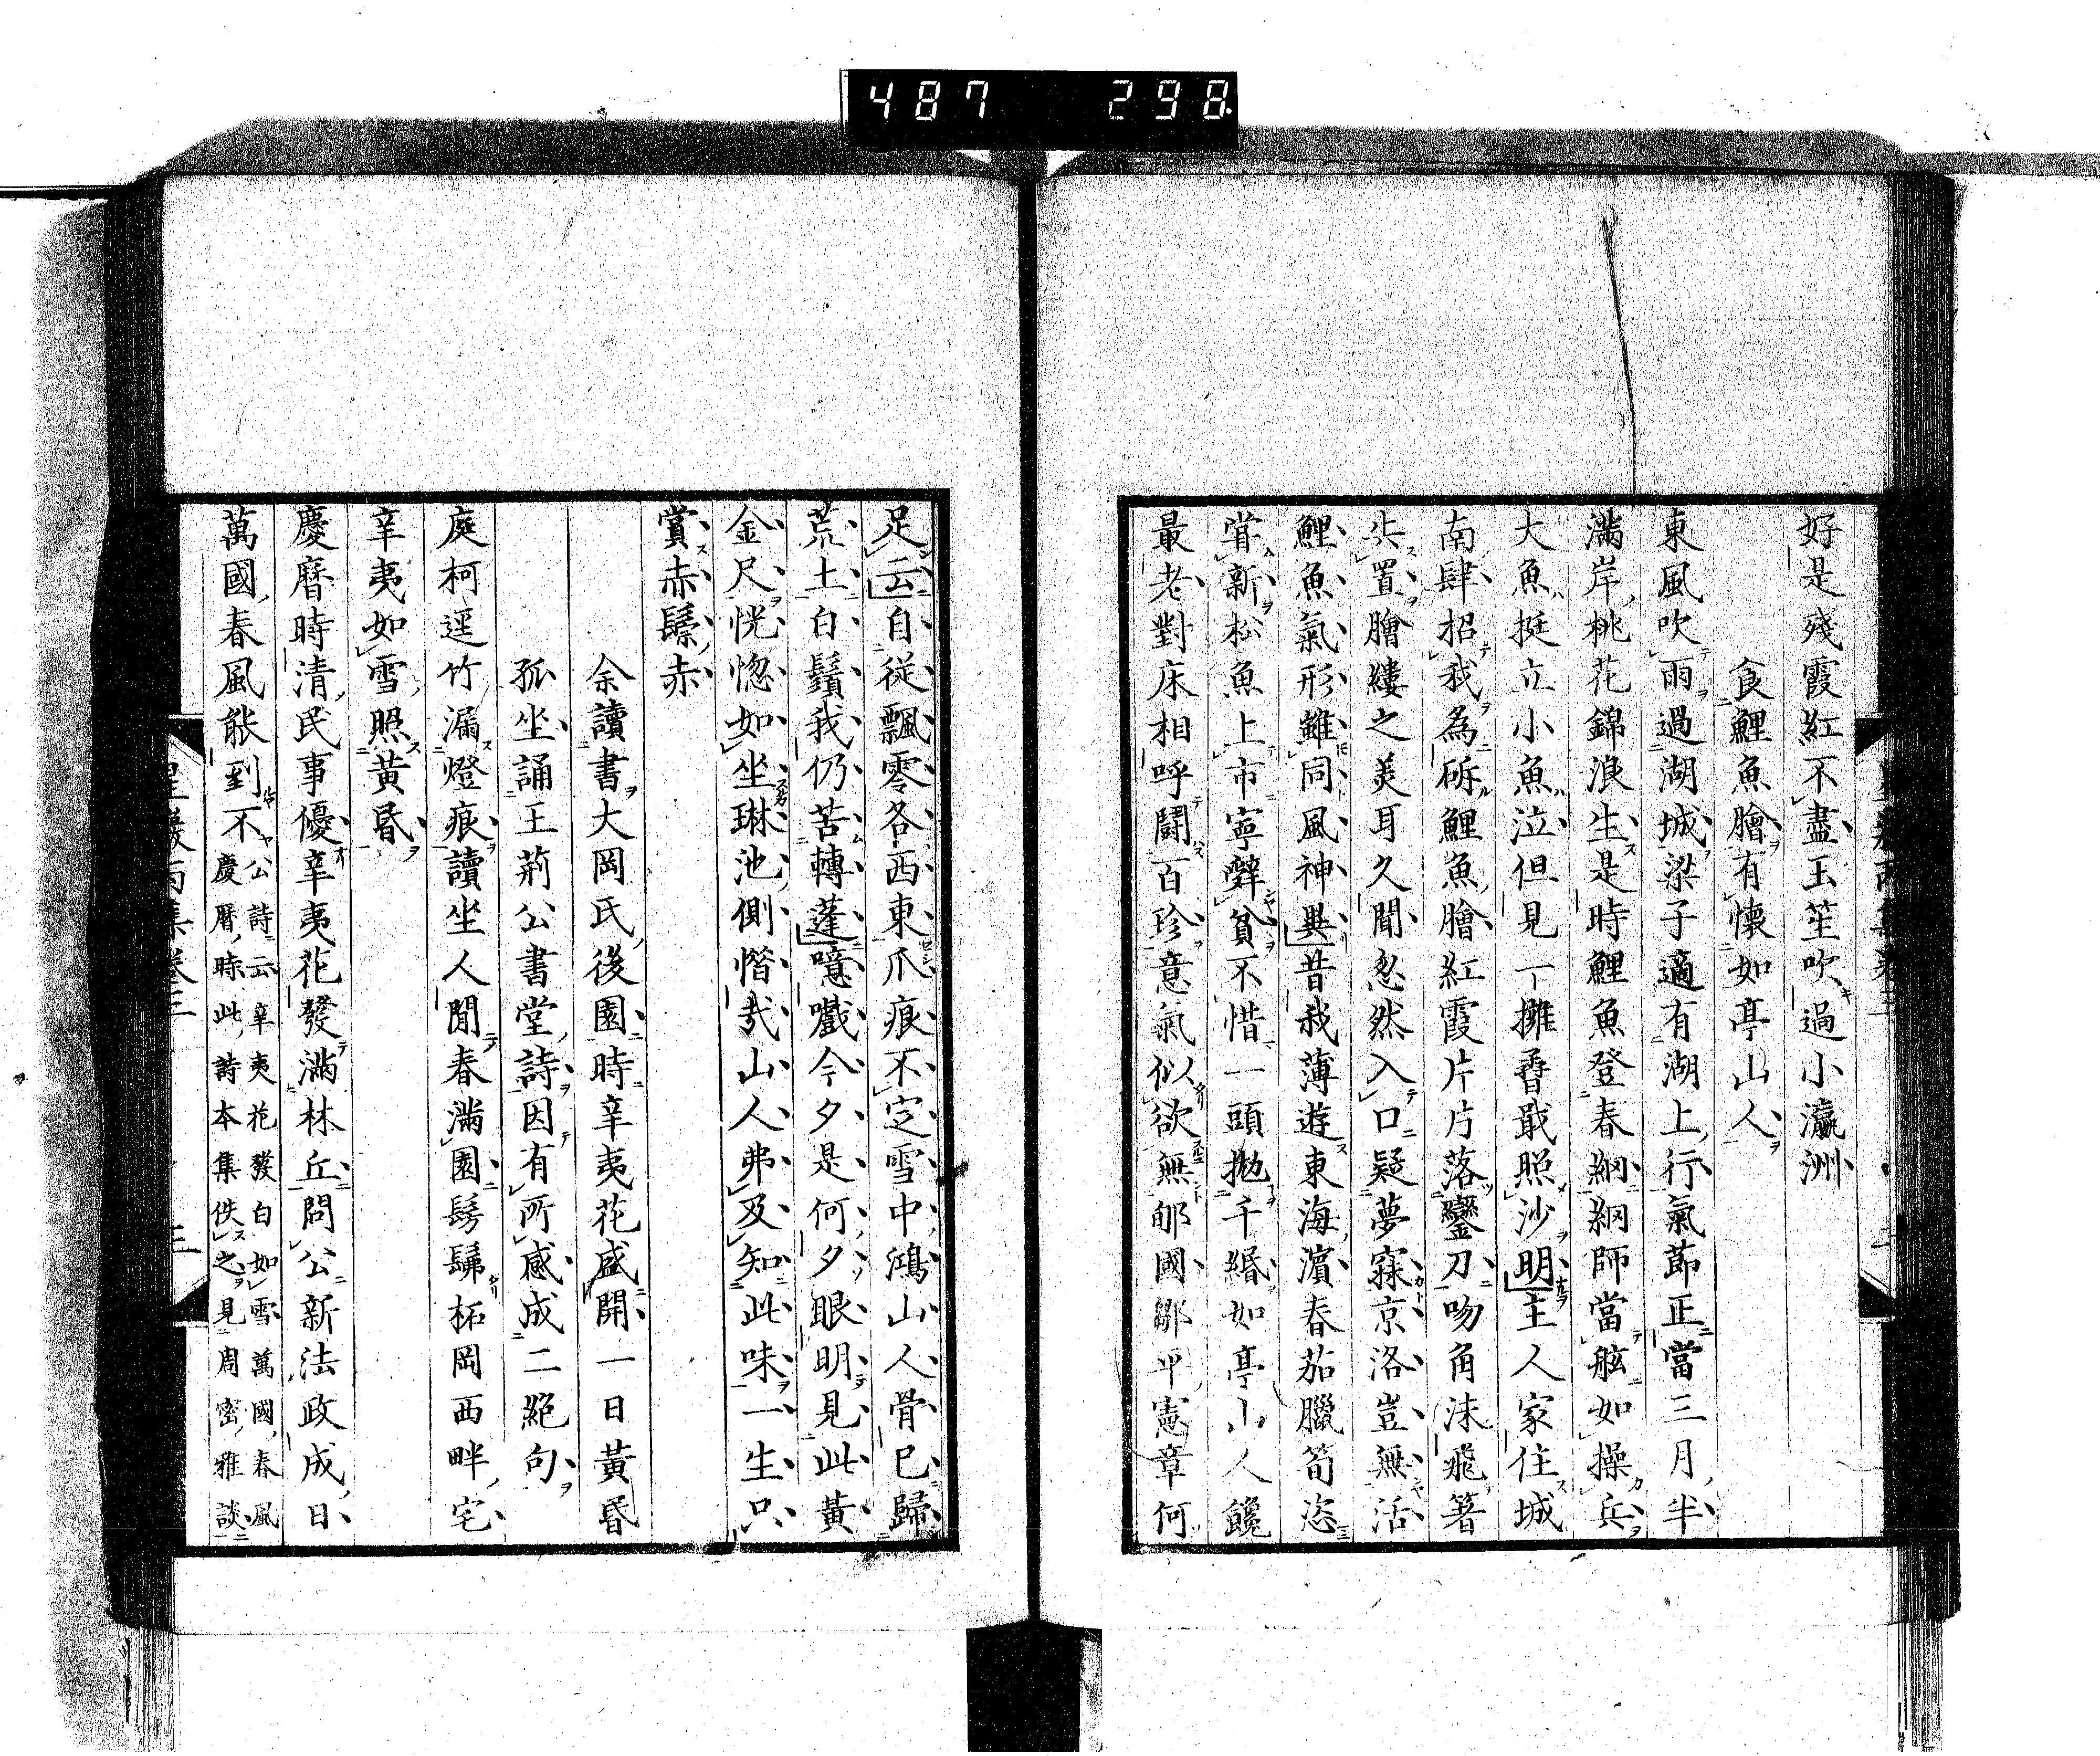 487 298
好是殘霞紅不盡玉笙吹過小瀛洲
食鯉魚膾有懷如亭山人
東風吹雨過湖城梁子適有湖上行氣節正當三月半
滿岸桃花錦浪生是時鯉魚登春網網師當舷如操兵
大魚挺立小魚泣但見一擁戢照沙明主人家住城
南肆招我為斫鯉魚膾紅霞片片落鑾刀吻角沫飛箸
失置膾縷之美耳久聞忽然入口疑夢寐京洛豈無活
鯉魚氣形雖同風神異昔我薄遊東海濱春茄臘筍恣
甞新松魚上市寧辭貧不惜一頭拋千緡如亭山人饞
最老對床相呼鬪百珍意氣似欲無郇國鄒平憲章何
足云自從飄零各西東爪痕不定雪中鴻山人骨已歸
荒土白鬚我仍苦轉蓬噫嚱今夕是何夕眼明見此黃
金尺恍惚如坐琳池側惜哉山人弗及知此味一生只
賞赤鬃赤
余讀書大岡氏後園時辛夷花盛開一日黃昏
孤坐誦王荊公書堂詩因有所感成二絕句
庭柯逕竹漏燈痕讀坐人閒春滿園髣髴柘岡西畔宅
辛夷如雪照黃昏
慶曆時清民事優辛夷花發滿林丘問公新法政成日
萬國春風能到不
公詩云辛夷花發白如雪萬國春風
慶曆時此詩本集佚之見周密雅談